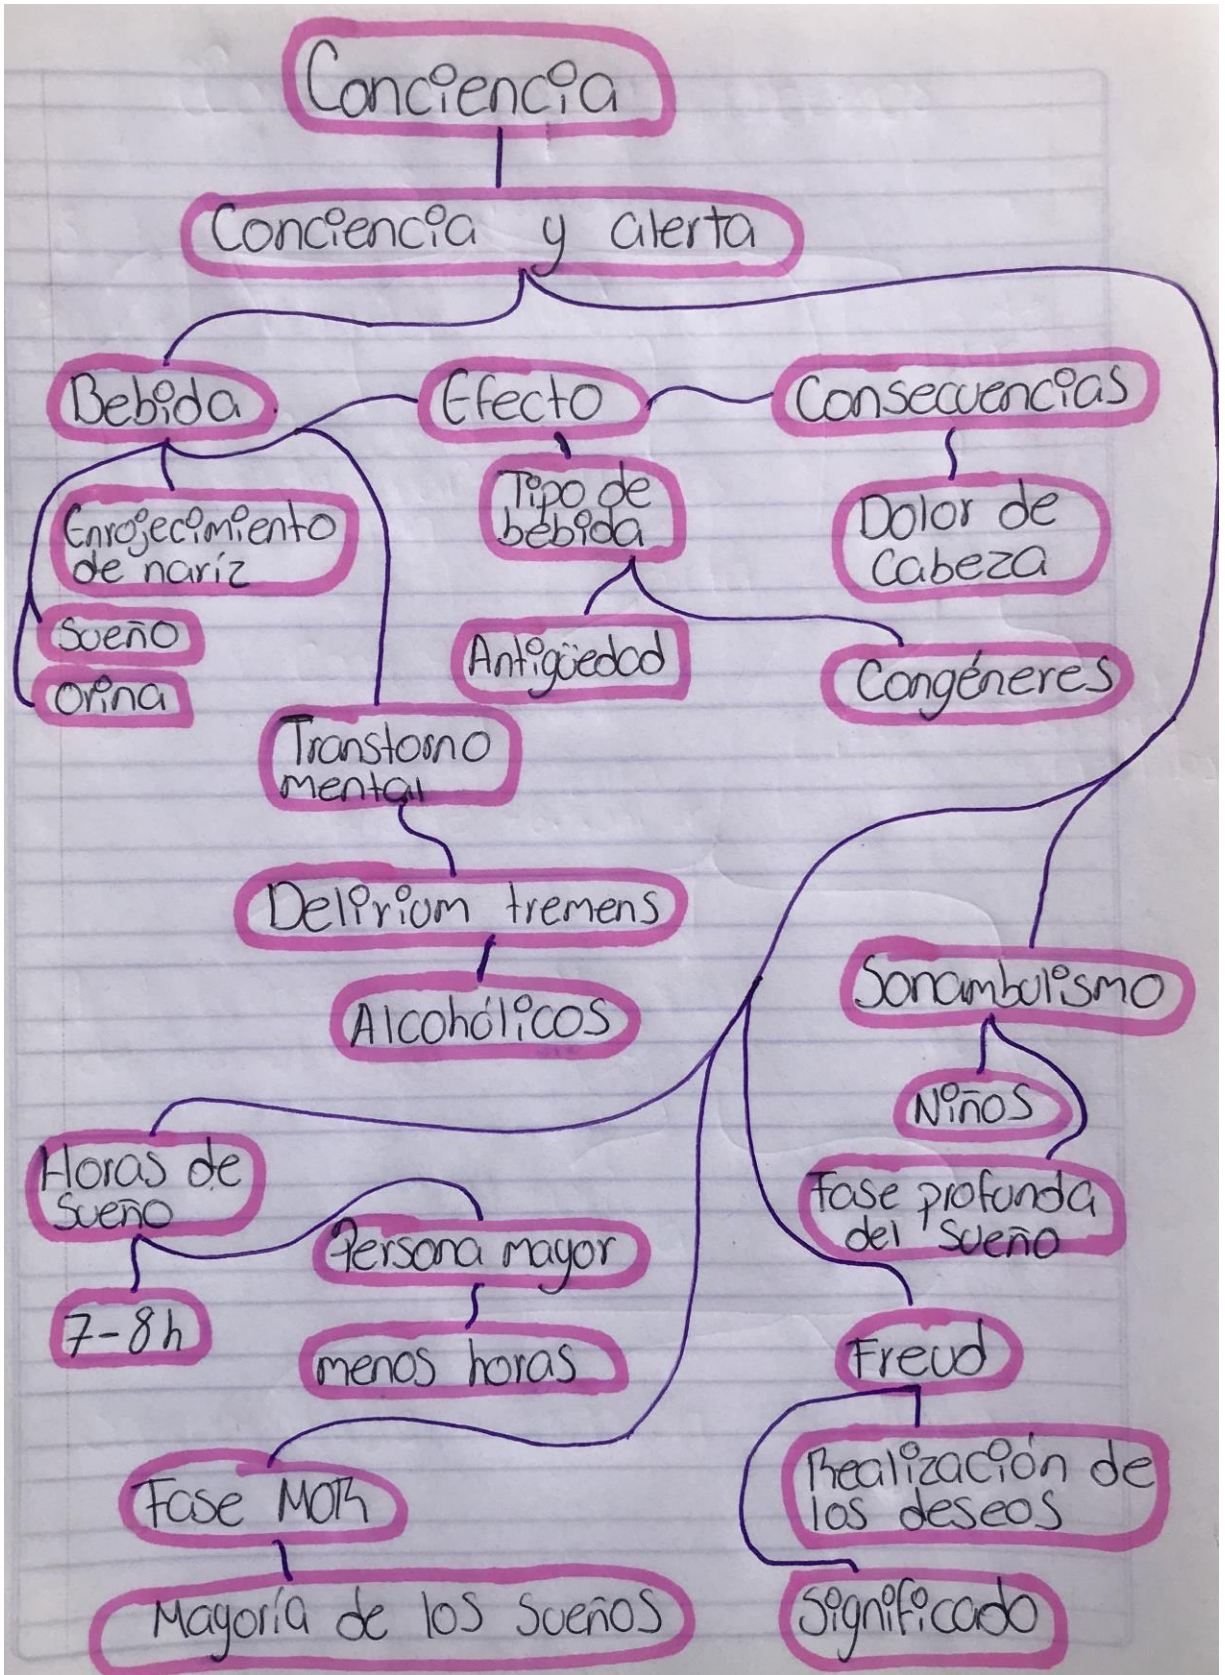 Conciencia
Conciencia y alerta
Bebida
Efecto
Consecuencias
Enrojecimiento
de naríz
Sueño
Orina
Tipo de
bebida
Dolor de
Cabeza
Antigüedad
Congéneres
Transtorno
mental
Delirium tremens
Alcohólicos
Sonambulismo
Niños
Fase profunda
del sueño
Horas de
Sueño
Persona mayor
7-8h
menos horas
Freud
Realización de
los deseos
Significado
Fase MOR
Mayoría de los Sueños